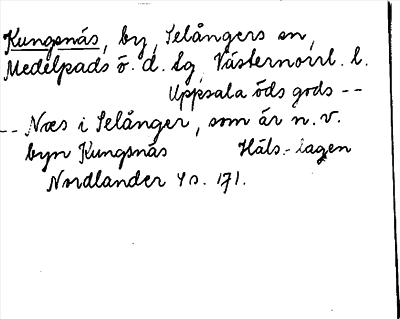 Kungsnäs, by, Selångers sn,
Medelpads ö. d. lg, Västernorrl. l.
Uppsala öds gods --
-- Næs i Selånger, som är n. v.
byn Kungsnäs Häls.-lagen
Nordlander 4 s. 171.